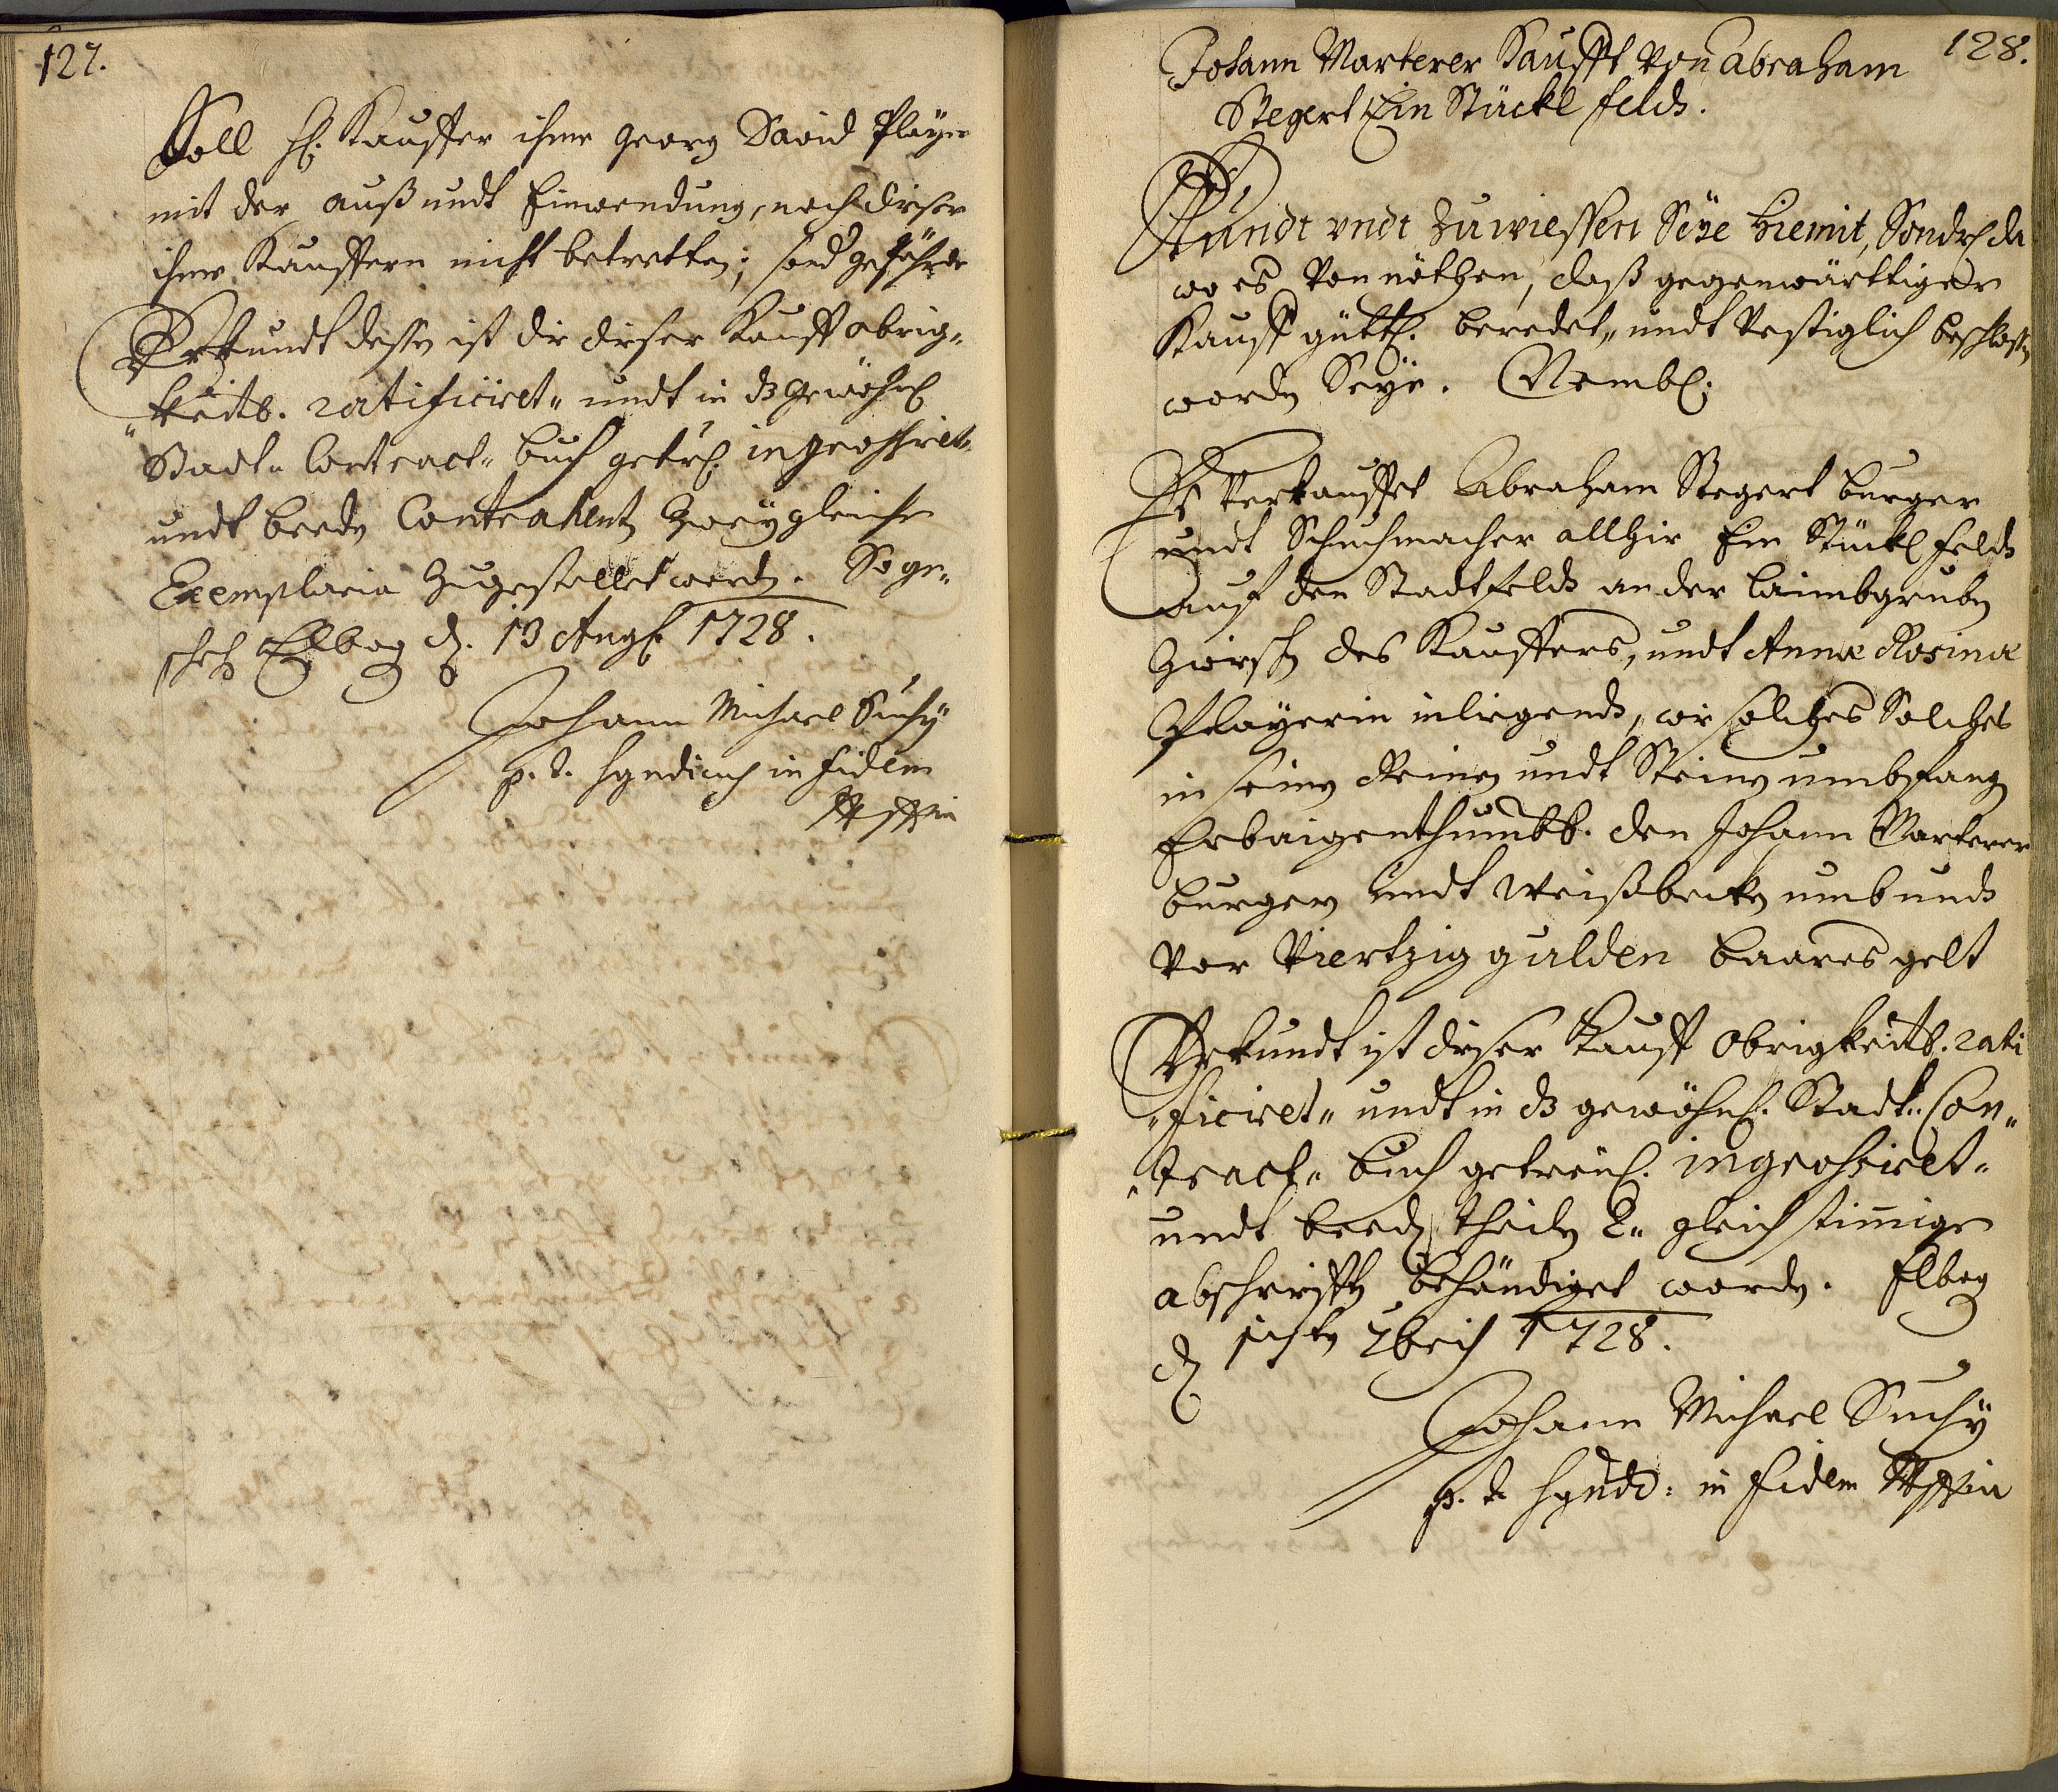 127.
Soll H: Kauffer ihme Georg David Player
mit der auß undt Einwendung, noch dieser
ihme Kauffern nicht betretten; sond gefährde
Uhrkundt dessen ist dieser Kauff obrig„
„keitl. ratificiret„ undt in ds gewöhnl
Stadt„ Contract„ buch getrl. ingrossiret„
undt beeden Contrahenten Zwey gleiche
Exemplaria Zugestellet worden. So ge„
scheh Elbog d. 13 Augl 1728.
Johann Michael Suchÿ
p. t. Syndicus in fidem
128.
Johann Marterer Kaufft von Abraham
Stegert Ein Stückl felds.
Kundt undt Zu wiessen Seÿe hiemit, Sondrl da
wo es Von nöthen, daß gegenwärttiger
Kauff güttl. beredet„ undt Vestiglich beschlossen
worden Seÿe. Nembl:
Es Verkauffet Abraham Stegert burger
undt Schuchmacher allhir Ein Stückl felds
auf den Stadtfelds an der laimbgruben
Zwischen des Kauffers, undt Annæ Rosinæ
Playerin inligends, wie solches Solches
in seinen Reinen undt Steinen umbfangen
Erbaigenthumbl. den Johann Marterer
burgern undt Weißbecken umb undt
Vor Viertzig gulden baares gelt
Uhrkundt ist dieser Kauff Obrigkeitl. rati
„ficiret„ undt in ds gewöhnl. Stadt„ Con„
„tract„ buch getreul. ingrossiret„
undt beeden theilen 2„ gleich stimmige
abschrifften behändiget worden. Elbog
d 7bris 1728.
Johann Michael Suchÿ
p. t. Synd: in fidem